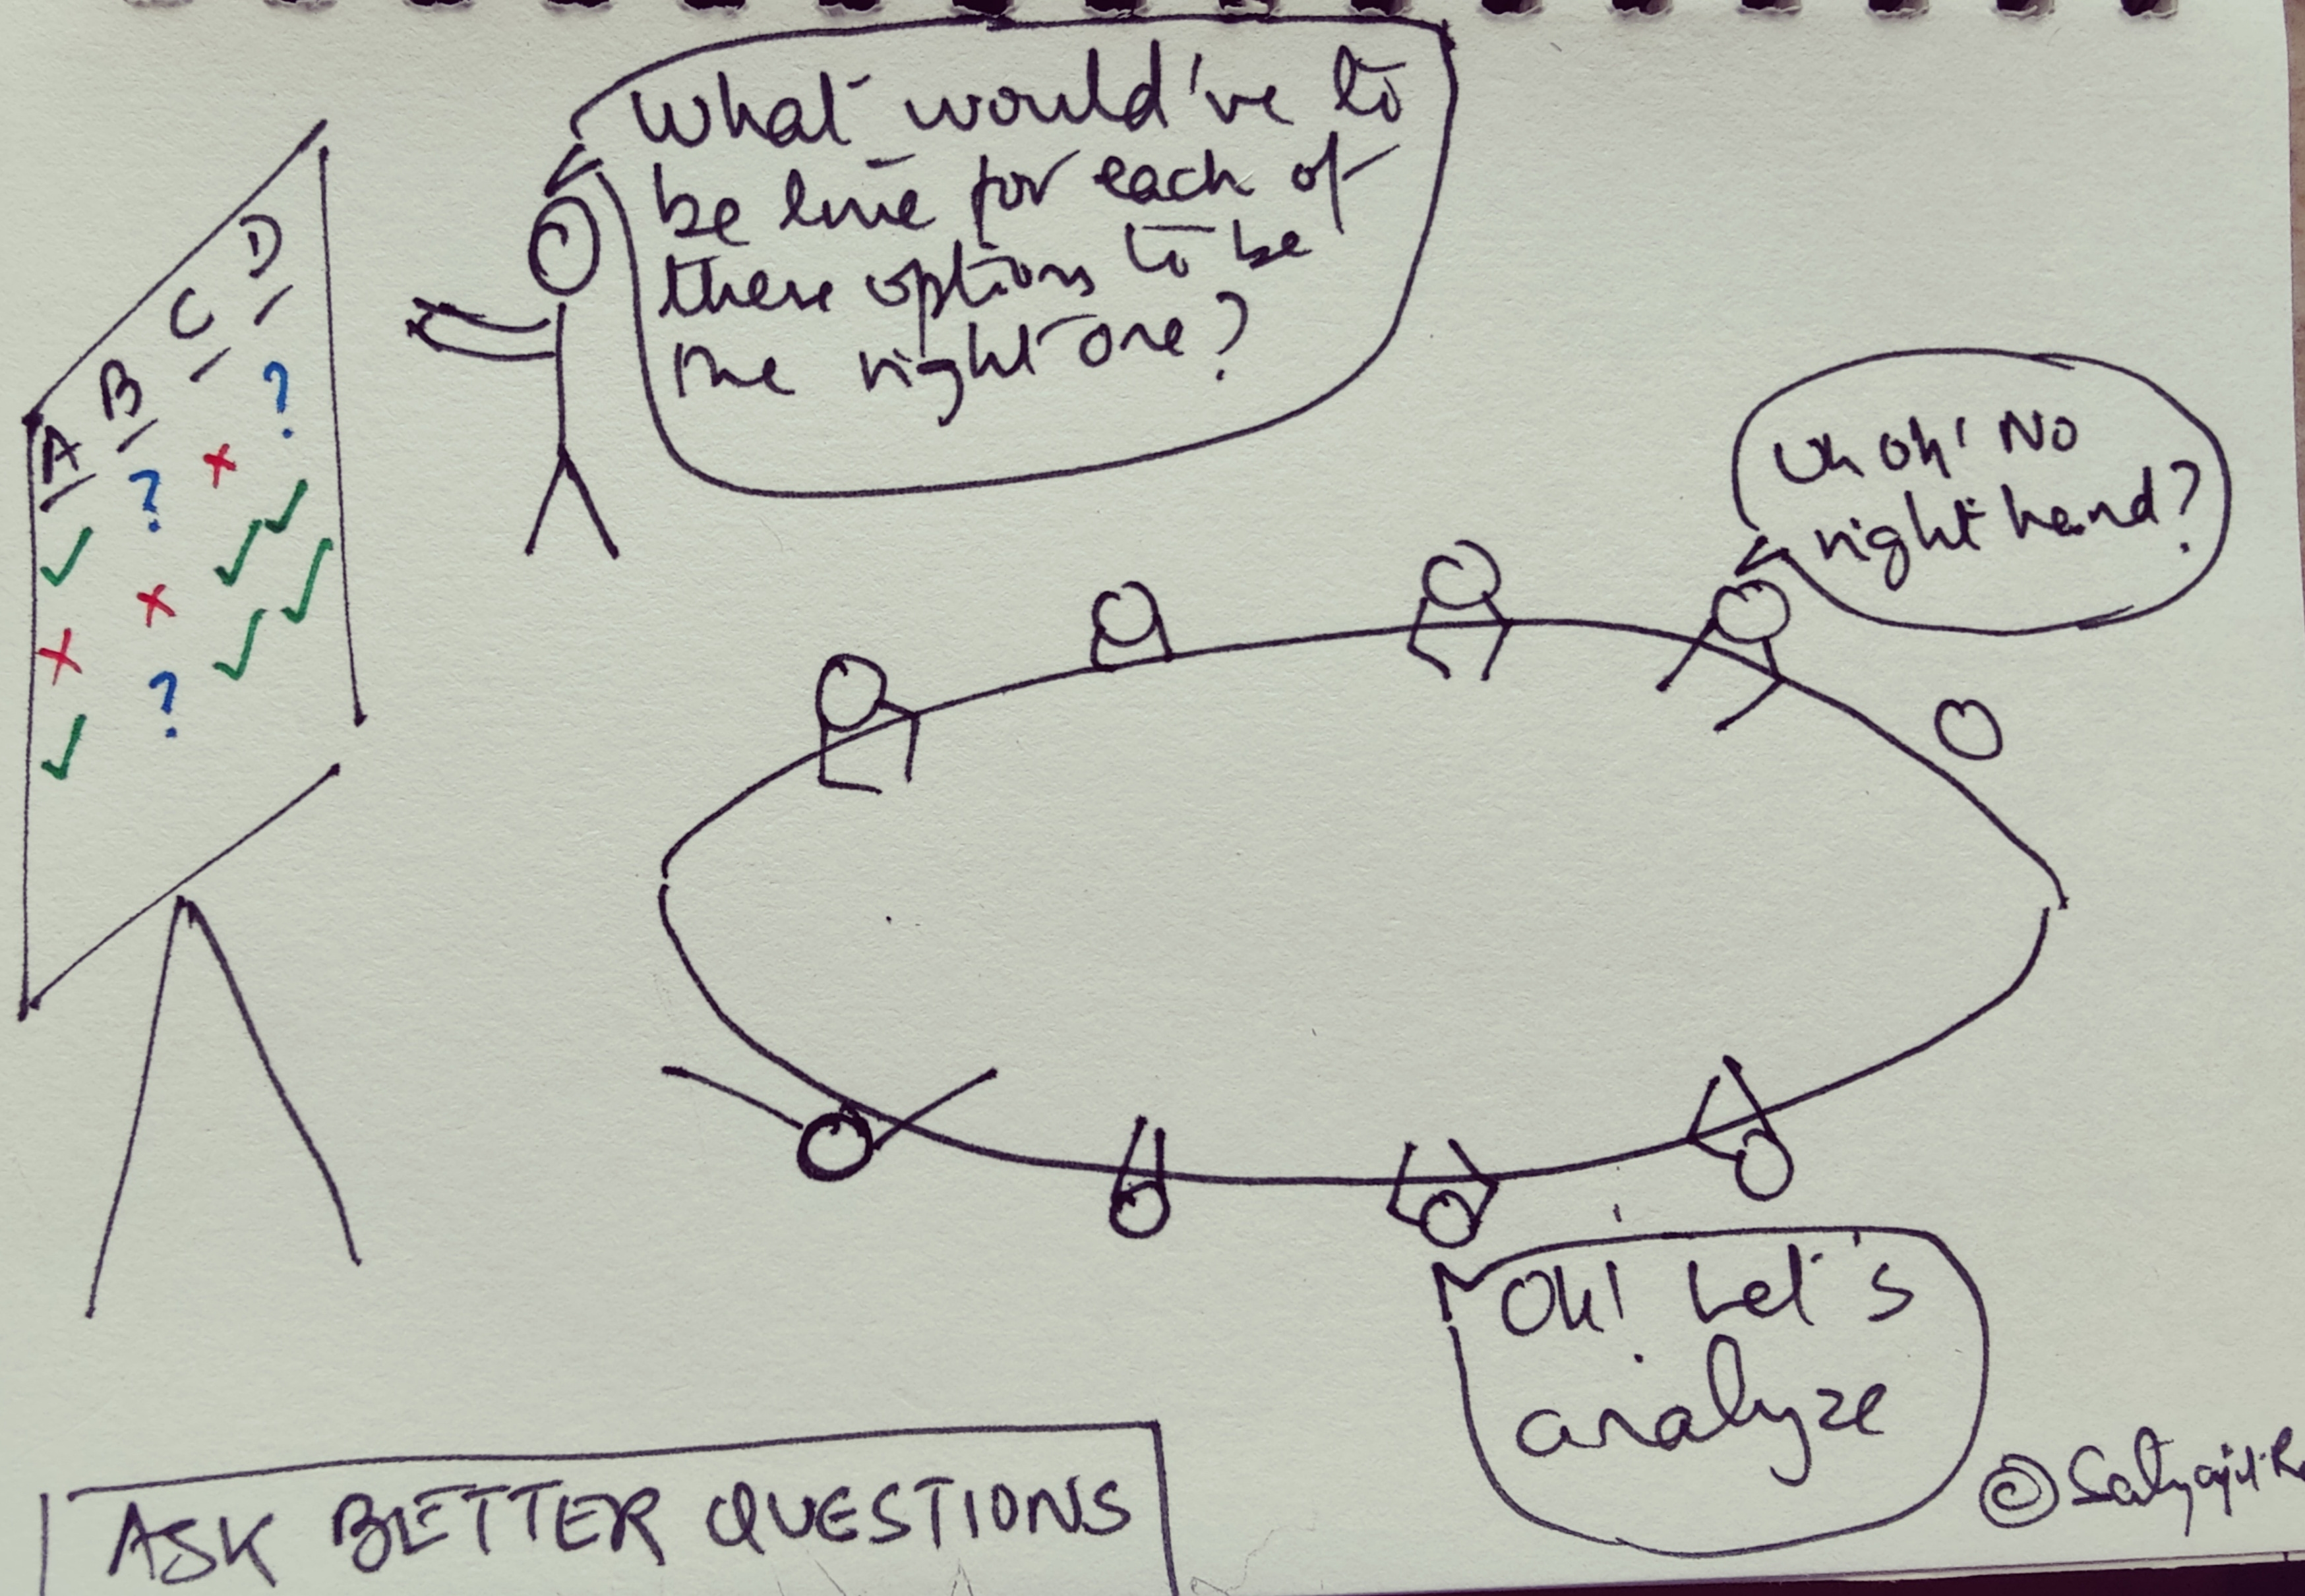 What would've to
be true for each of
these options to be
the right one?
A B C D
✓ ? × ?
× × ✓ ✓
✓ ? ✓ ✓
Uh oh! No
right hand?
Oh! Let's
analyze
ASK BETTER QUESTIONS
© Satyajit